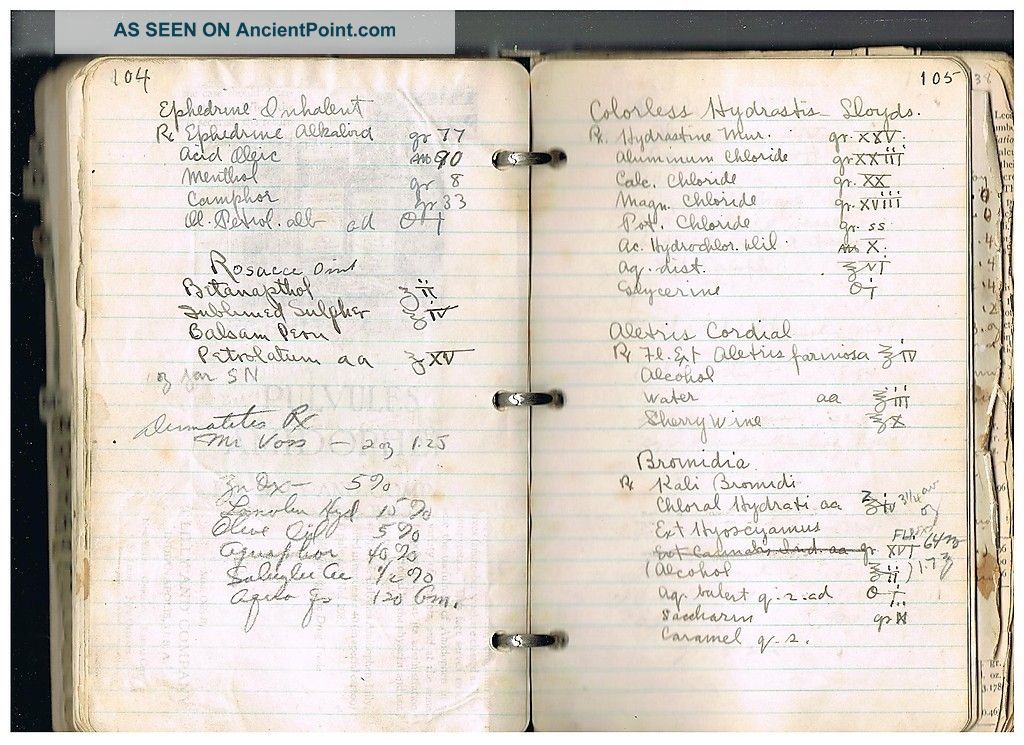 AS SEEN ON AncientPoint.com
104
Ephedrine Inhalent
Rx Ephedrine Alkaloid gr 77
Acid Oleic m 90
Menthol gr 8
Camphor gr 33
Ol. Petrol. alb ad O i
Rosacce Oint
Betanapthol ʒ ii
Sublimed Sulpher ʒ iv
Balsam Peru
Petrolatum aa ʒ XV
oz jar SN
Dermatites Rx
Mr Voss — 2 oz 1.25
Zn Ox — 5%
Lanolin Hyd 15%
Olive Oil 5%
Aquaphor 40%
Ac 1/2%
Aqua qs 120 Gm.
105
Colorless Hydrastis Lloyds.
Rx Hydrastine Mur. gr. XXV.
Aluminum Chloride gr XXiii
Calc. Chloride gr. XX
Magn. Chloride gr. XViii
Pot. Chloride gr. ss
Ac. Hydrochlor. Dil. m X.
Aq. dist. ℥ VI
Glycerine O i
Aletris Cordial
Rx Fl. Ext Aletris farinosa ℥ iv
Alcohol
Water aa ℥ iii
Sherry Wine ℥ X
Bromidia
Rx Kali Bromidi
Chloral Hydrati aa ℥ iv 3 1/4 av oz
Ext Hyoscyamus
Ext Cannabis Ind. aa gr. XVI
(Alcohol ℥ ii)
Aq. bulliet q. s. ad O i
Saccharin gr
Caramel q. s.